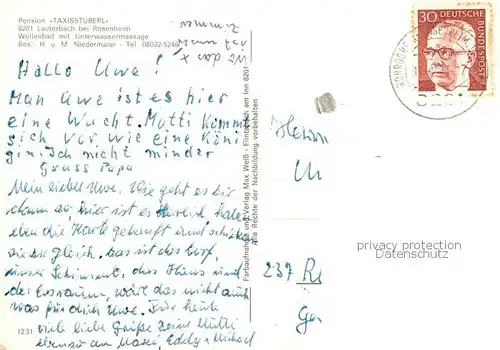 Pension «TAXISSTÜBERL»
8201 Lauterbach bei Rosenheim
Wellenbad mit Unterwassermassage
Bes.: H. u M Niedermaier - Tel. 08032-5246
Hallo Uwe!
Man Uwe ist es hier
eine Wucht. Mutti kommt
sich vor wie eine Köni
gin. Ich nicht minder
Gruss Papa
Mein lieber Uwe. Wie geht es dir
denn so, hier ist es herrlich, haben
eben die Karte gekauft und schicken
sie dir gleich. Das ist das Dorf,
unser Schwimmb. das Haus und
der Essraum, wäre das nicht auch
was für dich Uwe. Für heute
viele liebe Grüße Deine Mutti
ebenso an Maxi, Eddy u Michael
1231
Farbaufnahme und Verlag Max Weiß - Flintsbach am Inn 8201
Alle Rechte der Nachbildung vorbehalten
30
DEUTSCHE BUNDESPOST
8201
Herrn
U
237 R
Ge
privacy protection
Datenschutz